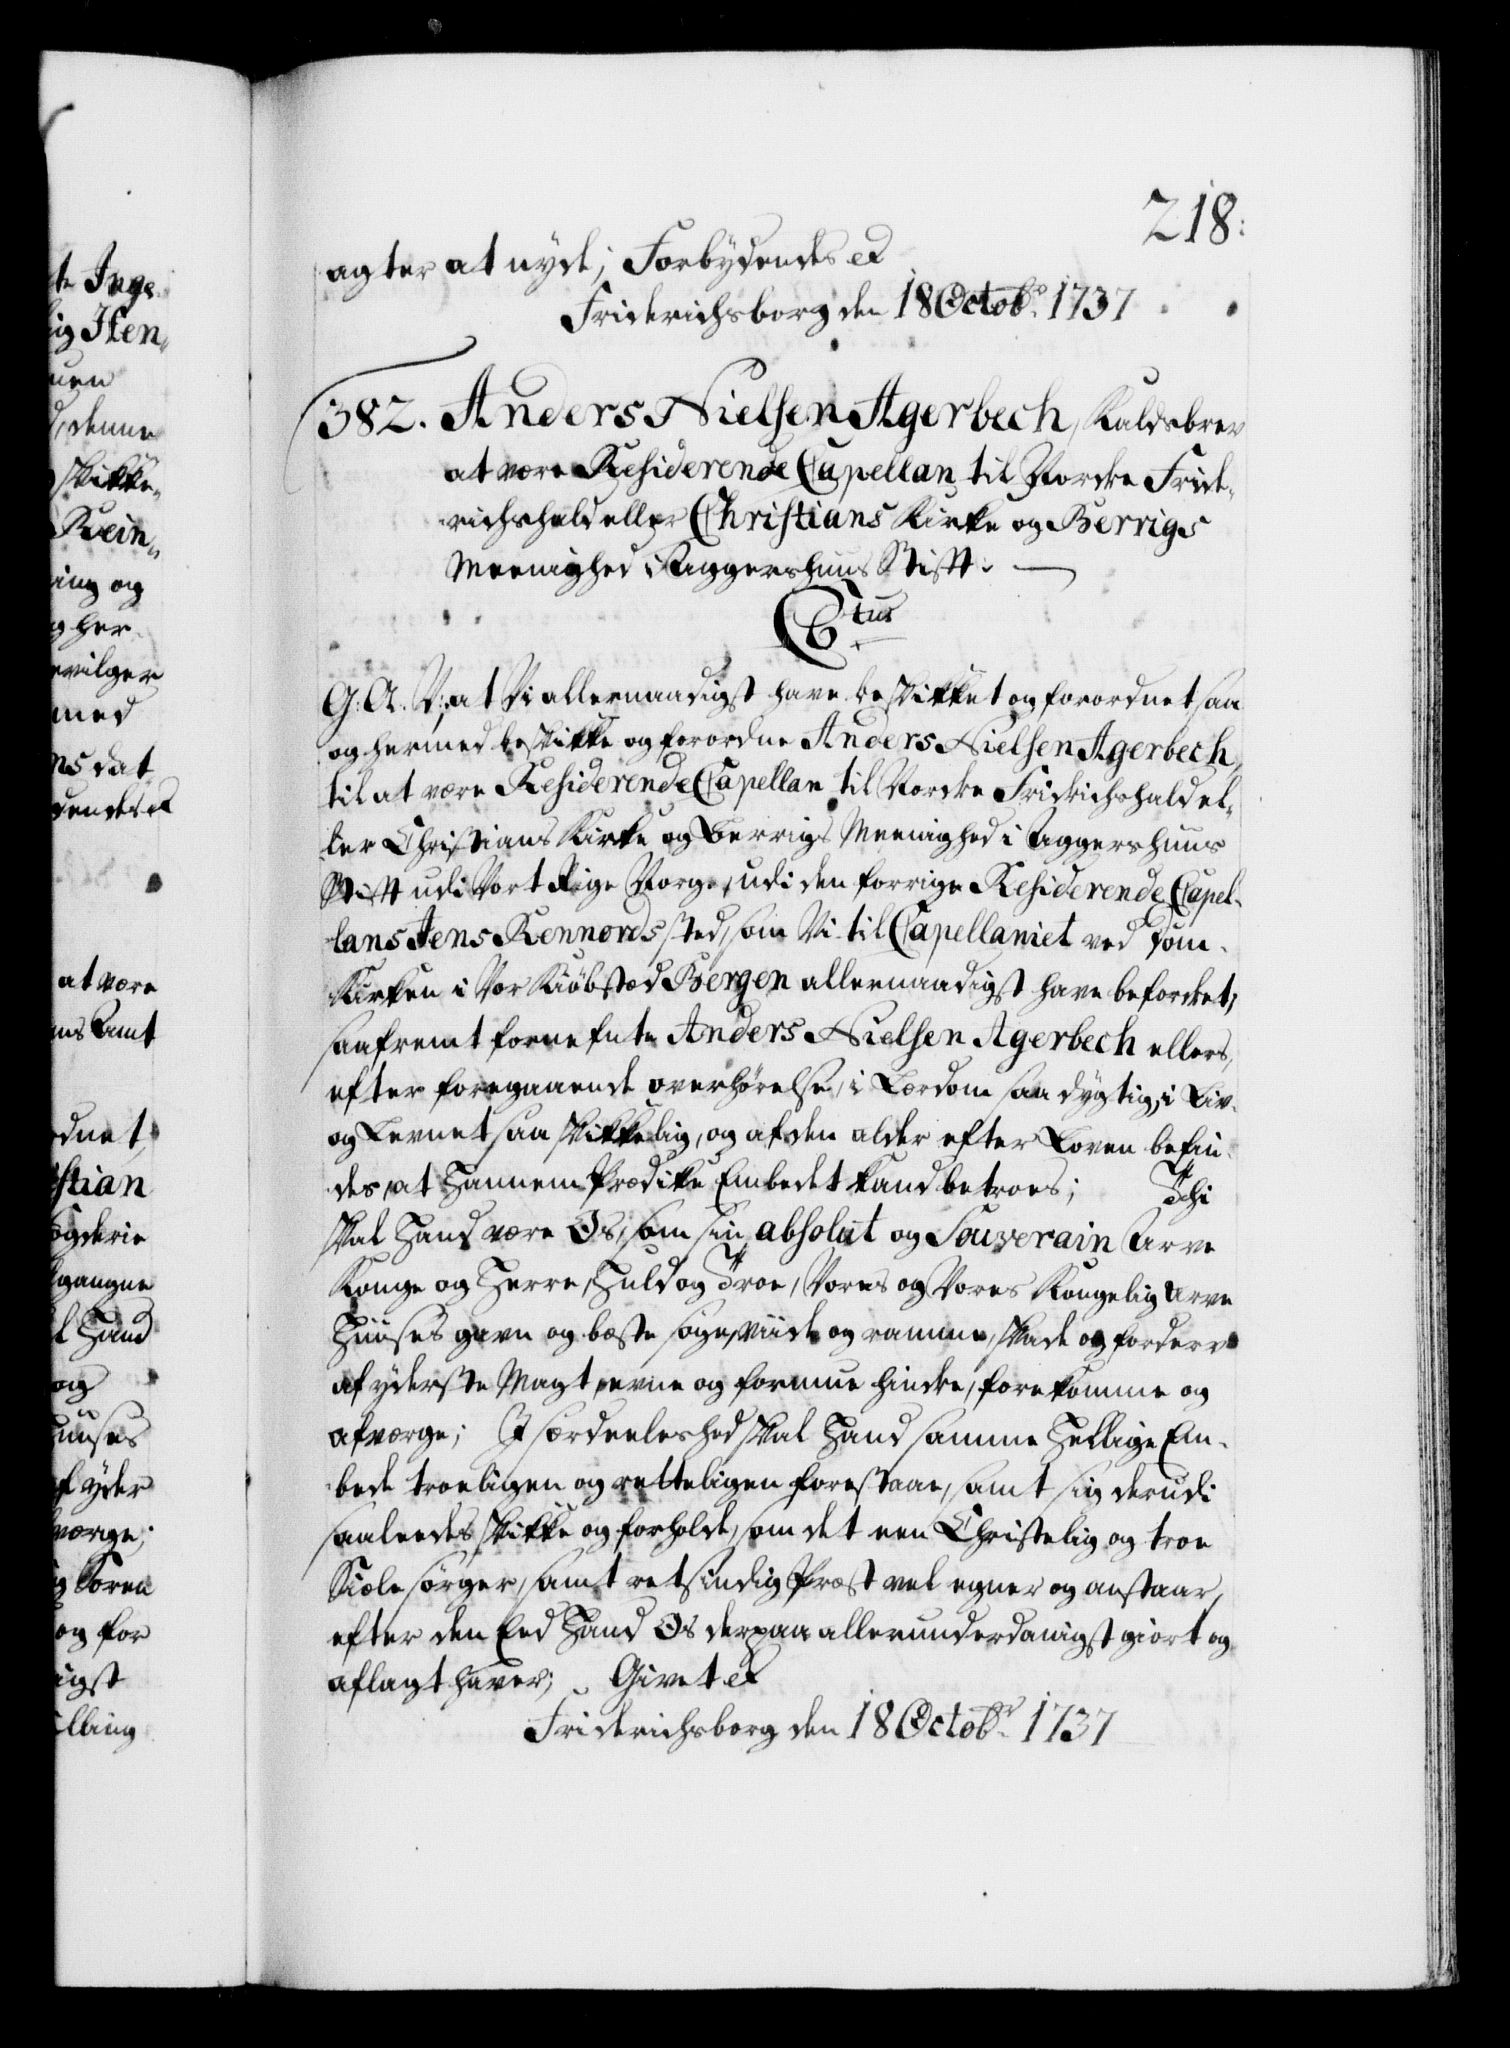 218:
agter at nyde; Forbydendes etc
Friderichsborg den 18 Octobr. 1737
382. Anders Nielsen Agerbech, Kaldsbrev
at være Residerende Capellan til Norske Fride-
richshald eller Christians Kirke og Berrigs
Meenighed i Aggershuus Stift.
C6tus
G. A. V; at Vi allernaadigst have beskikket og forordnet saa
og hermed beskikke og forordne Anders Nielsen Agerbech,
til at være Residerende Capellan til Norske Friderichshald el-
ler Christians Kirke og Berrigs Meenighed i Aggershuus
Stift udi Vort Rige Norge, udi den forrige Residerende Capel-
lans Jens Rennords sted, som Vi til Capellaniet ved Dom-
Kirken i Vor Kiøbstæd Bergen allernaadigst have befordret,
saafremt fornefnte Anders Nielsen Agerbech ellers,
efter foregaaende overhørelse, i Lærdom saa dygtig, i Liv-
og Levnet saa skikkelig, og af den alder efter Loven befin-
des, at Hannem Prædike Embedet kand betroes; Thi
skal Hand være Os, som sin absolut og Souverain Arve
Konge og Herre, Huld og Troe, Vores og Vores Kongelig Arve
Huuses gavn og beste søge, viide og ramme, skade og forderv
af yderste Magt, evne og formue hindre, forekomme og
afværge; I særdeeleshed skal Hand samme Hellige Em-
bede troeligen og retteligen forestaae, samt sig derudi
saaleedes skikke og forholde, som det een Christelig og troe
Siælesørger, samt retsindig Præst vel egner og anstaar,
efter den Eed Hand Os derpaa allerunderdanigst giort og
aflagt haver; Givet etc
Friderichsborg den 18 Octobr. 1737